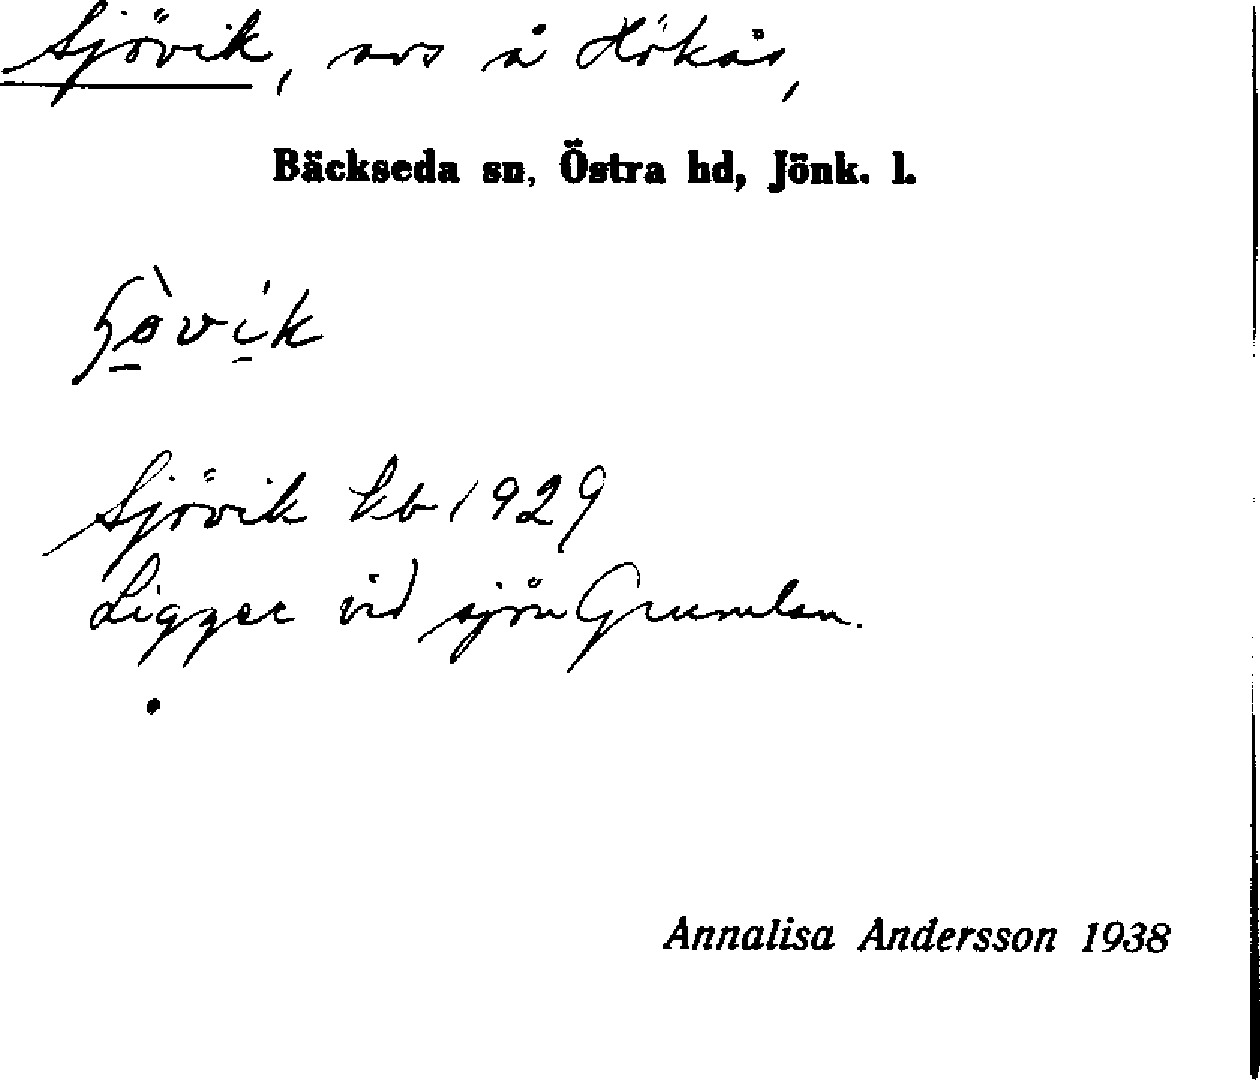 Sjövik, avs å Hökås,
Bäckseda sn, Östra hd, Jönk. l.
Sjövik kb 1929
Ligger vid sjön Grumlan.
Annalisa Andersson 1938